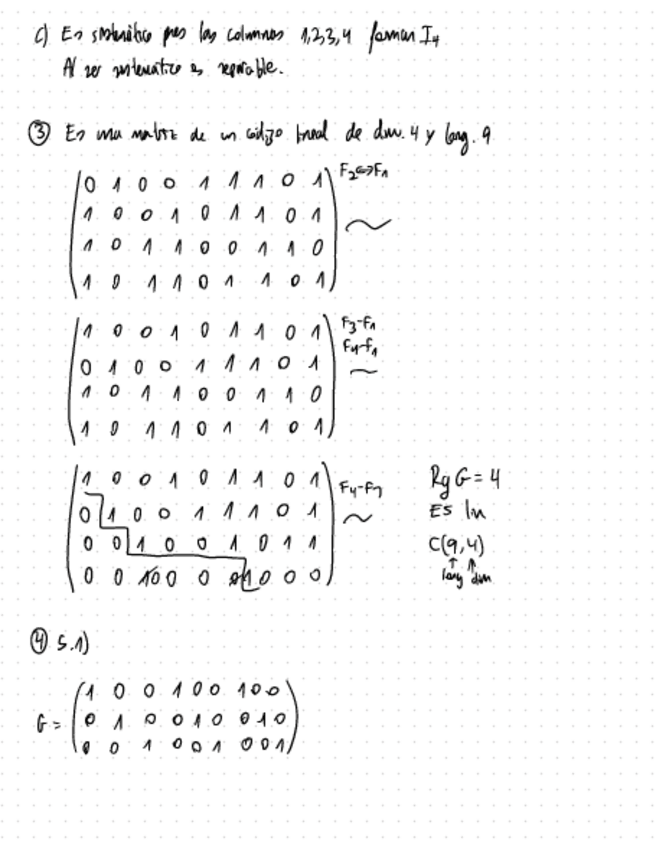 c) Es sistemático pues las columnas 1,2,3,4 forman I4
Al ser sistemático es separable.
③ Es una matriz de un código lineal de dim. 4 y long. 9
0 1 0 0 1 1 1 0 1 F2⇔F1
1 0 0 1 0 1 1 0 1
1 0 1 1 0 0 1 1 0 ~
1 0 1 1 0 1 1 0 1
1 0 0 1 0 1 1 0 1 F3-F1
0 1 0 0 1 1 1 0 1 F4-F1
1 0 1 1 0 0 1 1 0 ~
1 0 1 1 0 1 1 0 1
1 0 0 1 0 1 1 0 1 Rg G = 4
0 1 0 0 1 1 1 0 1 ~ ES
0 0 1 0 0 1 0 1 1 C(9,4)
0 0 0 0 0 0 0 0 long dim
④ 5.1)
1 0 0 1 0 0 1 0 0
G = 0 1 0 0 1 0 0 1 0
0 0 1 0 0 1 0 0 1